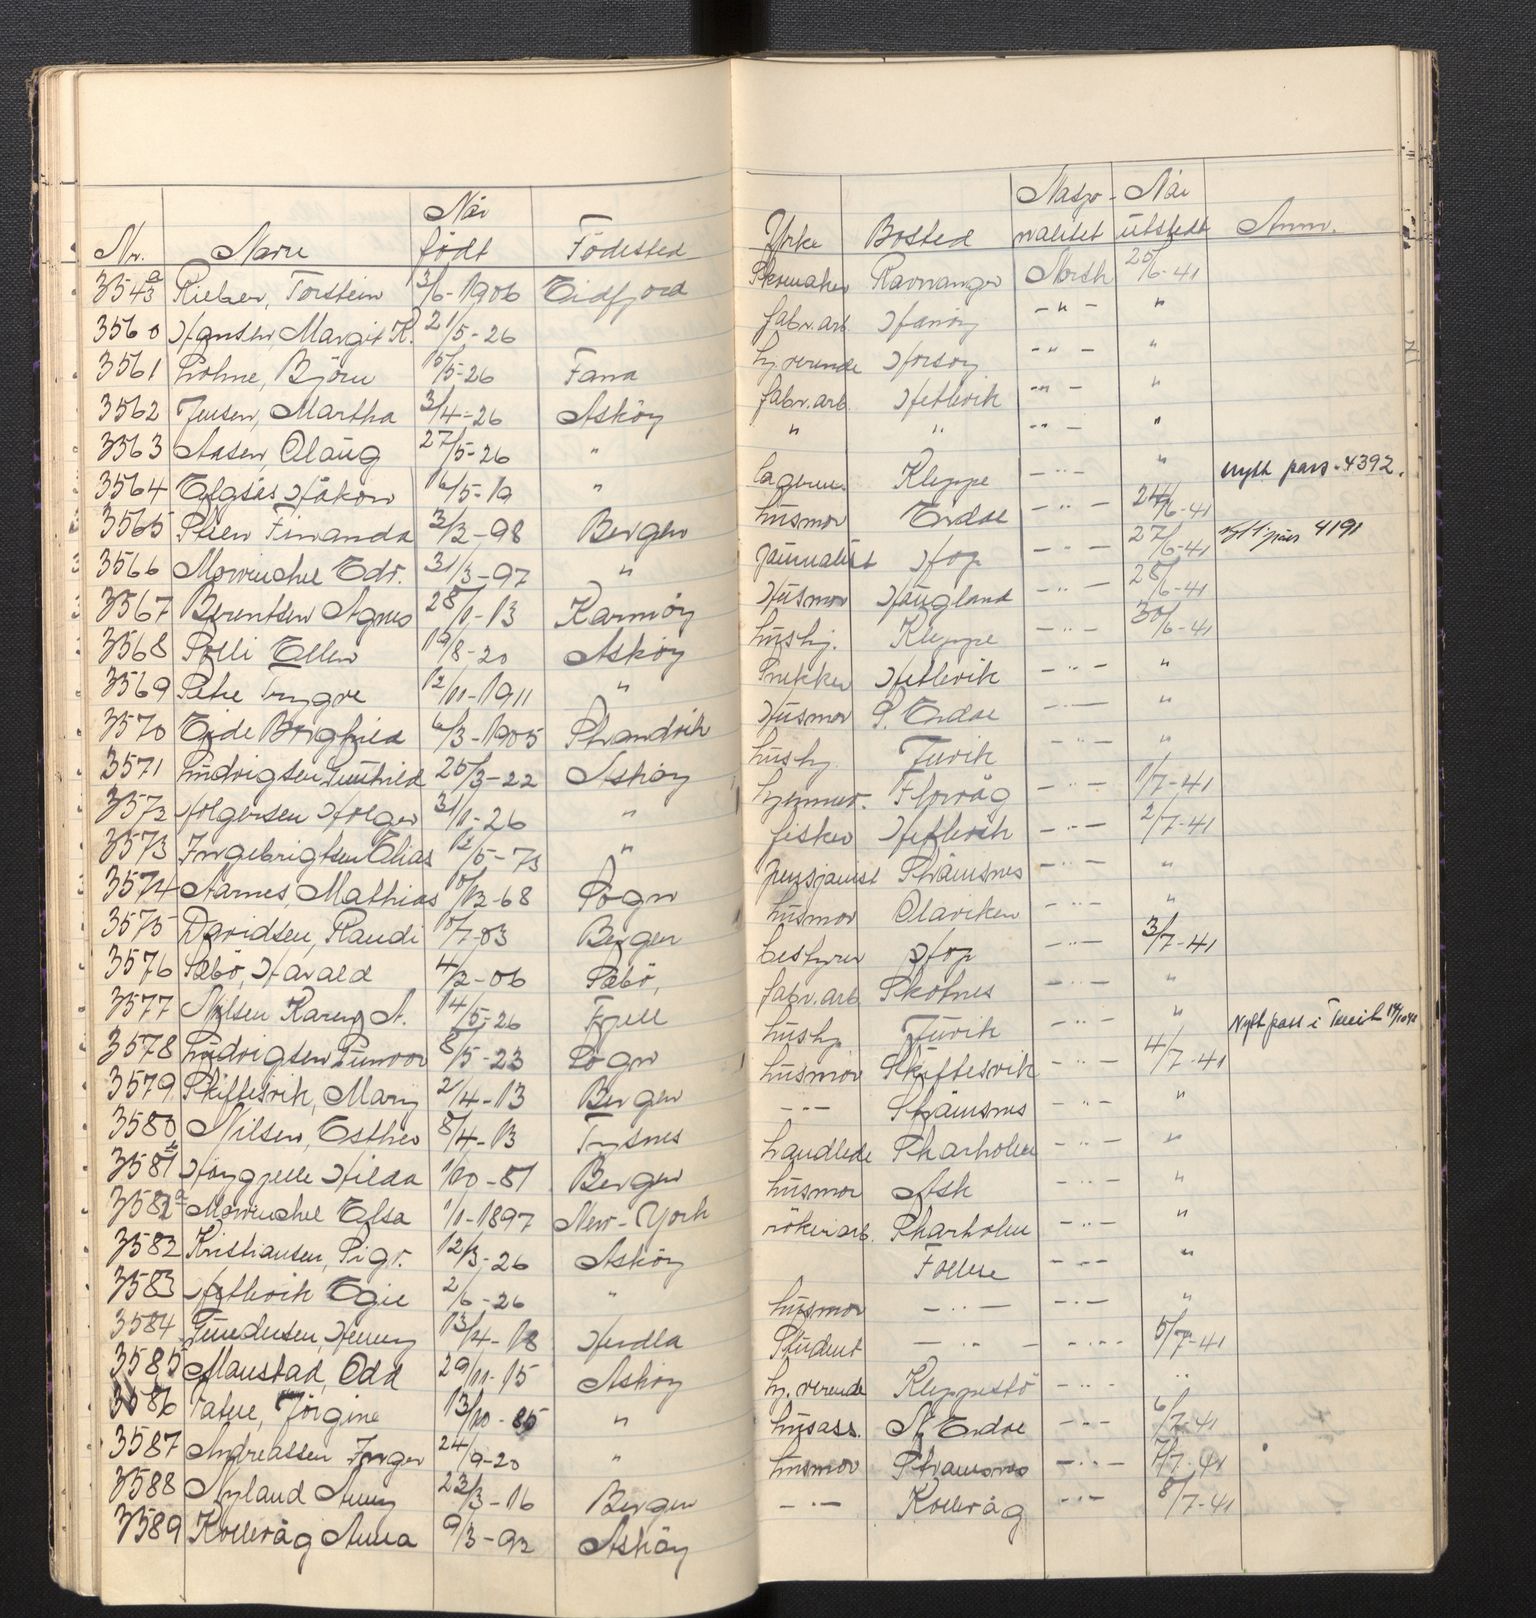 Nr. Navn Når født Födested Yrke Bosted Nasjo-nalitet Når utstedt Anm.
3543a Rieber, Torstein 3/6-1906 Eidfjord Skomaker Ravnanger Norsk 25/6-41
3560 Hansen, Margit K. 21/5-26 fabr.arb. Hanöy -"- "
3561 Löhne, Björn 15/5-26 Fana hj.verende Horsöy -"- "
3562 Jensen, Martha 3/4-26 Asköy fabr.arb. Hetlevik -"- "
3563 Aasen, Olaug 27/5-26 " " " -"- "
3564 Elgsås Håkon 16/5-19 " lagerm. Kleppe -"- " nytt pass-4392.
3565 Steen Finanda 3/3-98 Bergen husmor Erdal -"- 24/6-41
3566 Mowinckel Edv. 31/3-97 " journalist Hop -"- 27/6-41 nytt pass 4191
3567 Berentsen Agnes 28/1-13 Karmöy Husmor Haugland -"- 28/6-41
3568 Polli Ellen 19/8-20 Asköy hushj. Kleppe -"- 30/6-41
3569 Petre Trygve 12/11-1911 " Snekker Hetlevik -"- "
3570 Eide Borghild 6/3-1905 Strandvik Husmor S. Erdal -"- "
3571 Ludvigsen Gunhild 25/3-22 Asköy hushj. Juvik -"- "
3572 Holgersen Holger 31/1-26 " hjemmev. Florvåg -"- 1/7-41
3573 Ingebrigtsen Elias 12/5-73 " fisker Hetlevik -"- 2/7-41
3574 Aarnes, Mathias 10/12-68 Sogn pensjonist Straumsnes -"- "
3575 Davidsen, Randi 10/7-03 Bergen husmor Olaviken -"- "
3576 Säbö, Harald 4/2-06 Säbö, bestyrer Hop -"- 3/7-41
3577 Nilsen Karen A. 14/5-26 Fjell fabr.arb. Skotnes -"- "
3578 Ludvigsen Gunvor 8/5-23 Sogn hushj. Juvik -"- " Nytt pass i
3579 Skiftesvik, Mary 2/4-13 Bergen husmor Skiftesvik -"- 4/7-41
3580 Nilsen, Esther 8/4-13 Tysnes -"- Straumsnes -"- "
3581 Höygjelle Hilda 1/10-81 Bergen handlede Skarholm -"- "
3582a Mowinckel Elsa 1/1-1897 New-York husmor Ask -"- "
3582 Kristiansen, Sigr. 12/3-26 Asköy rökeriarb. Skarholm -"- "
3583 Hetlevik Egil 2/6-26 " Follese -"- "
3584 Gundersen, Henny 13/4-18 Herdla husmor -"- -"- "
3585 Maustad, Odd 29/11-15 Asköy Student -"- -"- 5/7-41
3586 Jörgine 13/10-85 " hj.verende Kleppestö -"- "
3587 Andreassen Inger 24/9-20 " husass. N. Erdal -"- 6/7-41
3588 Nyland Anny 23/3-16 Bergen husmor Straumsnes -"- 7/7-41
3589 Kollevåg Anna 9/3-92 Asköy -"- Kollevåg -"- 8/7-41